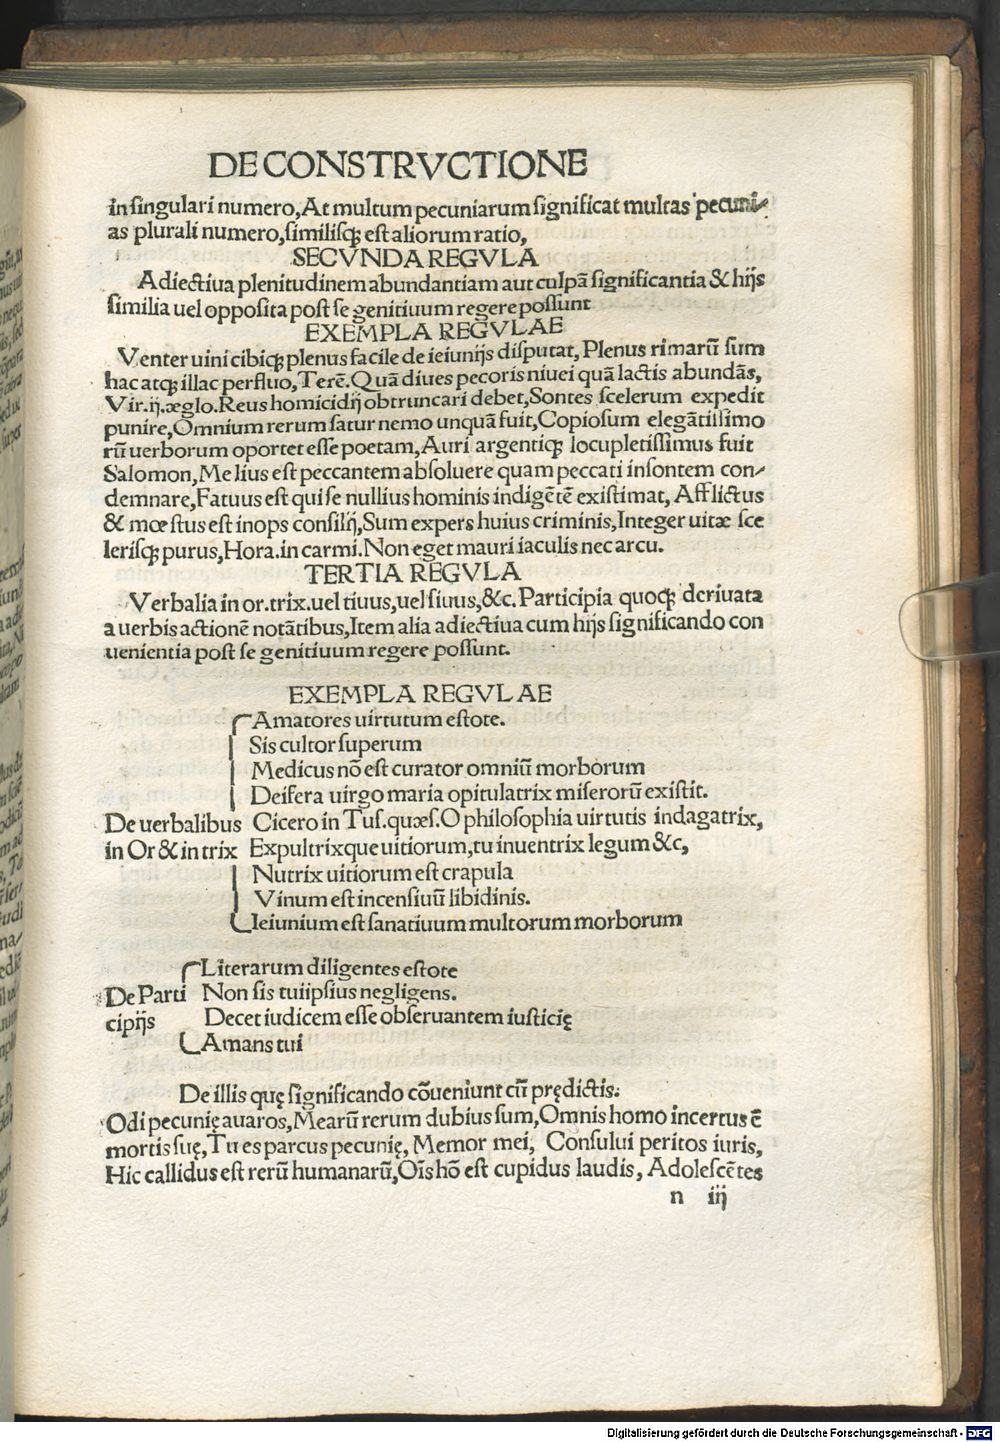 DE CONSTRVCTIONE
in singulari numero, At multum pecuniarum significat multas pecuni-
as plurali numero, similisq; est aliorum ratio,
SECVNDA REGVLA
Adiectiua plenitudinem abundantiam aut culpã significantia & hijs
similia uel opposita post se genitiuum regere possunt
EXEMPLA REGVLAE
Venter uini cibiq; plenus facile de ieiunijs disputat, Plenus rimarũ sum
hac atq; illac perfluo, Terẽ. Quã diues pecoris niuei quã lactis abundãs,
Vir. ij. æglo. Reus homicidij obtruncari debet, Sontes scelerum expedit
punire, Omnium rerum satur nemo unquã fuit, Copiosum elegãtissimo
rũ uerborum oportet esse poetam, Auri argentiq; locupletissimus fuit
Salomon, Melius est peccantem absoluere quam peccati insontem con-
demnare, Fatuus est qui se nullius hominis indigẽtẽ existimat, Afflictus
& mœstus est inops consilij, Sum expers huius criminis, Integer uitæ sce
lerisq; purus, Hora. in carmi. Non eget mauri iaculis nec arcu.
TERTIA REGVLA
Verbalia in or. trix. uel tiuus, uel siuus, &c. Participia quoq; deriuata
a uerbis actionẽ notãtibus, Item alia adiectiua cum hijs significando con
uenientia post se genitiuum regere possunt.
EXEMPLA REGVLAE
Amatores uirtutum estote.
Sis cultor superum
Medicus nõ est curator omniũ morborum
Deifera uirgo maria opitulatrix miserorũ existit.
De uerbalibus Cicero in Tus. quæs. O philosophia uirtutis indagatrix,
in Or & in trix Expultrixque uitiorum, tu inuentrix legum &c,
Nutrix uitiorum est crapula
Vinum est incensiuũ libidinis.
Ieiunium est sanatiuum multorum morborum
Literarum diligentes estote
De Parti Non sis tuiipsius negligens.
cipijs Decet iudicem esse obseruantem iusticię
Amans tui
De illis quę significando cõueniunt cũ prędictis:
Odi pecunię auaros, Mearũ rerum dubius sum, Omnis homo incertus ẽ
mortis suę, Tu es parcus pecunię, Memor mei, Consului peritos iuris,
Hic callidus est rerũ humanarũ, Oĩs hõ est cupidus laudis, Adolescẽtes
n iij
Digitalisierung gefördert durch die Deutsche Forschungsgemeinschaft - DFG